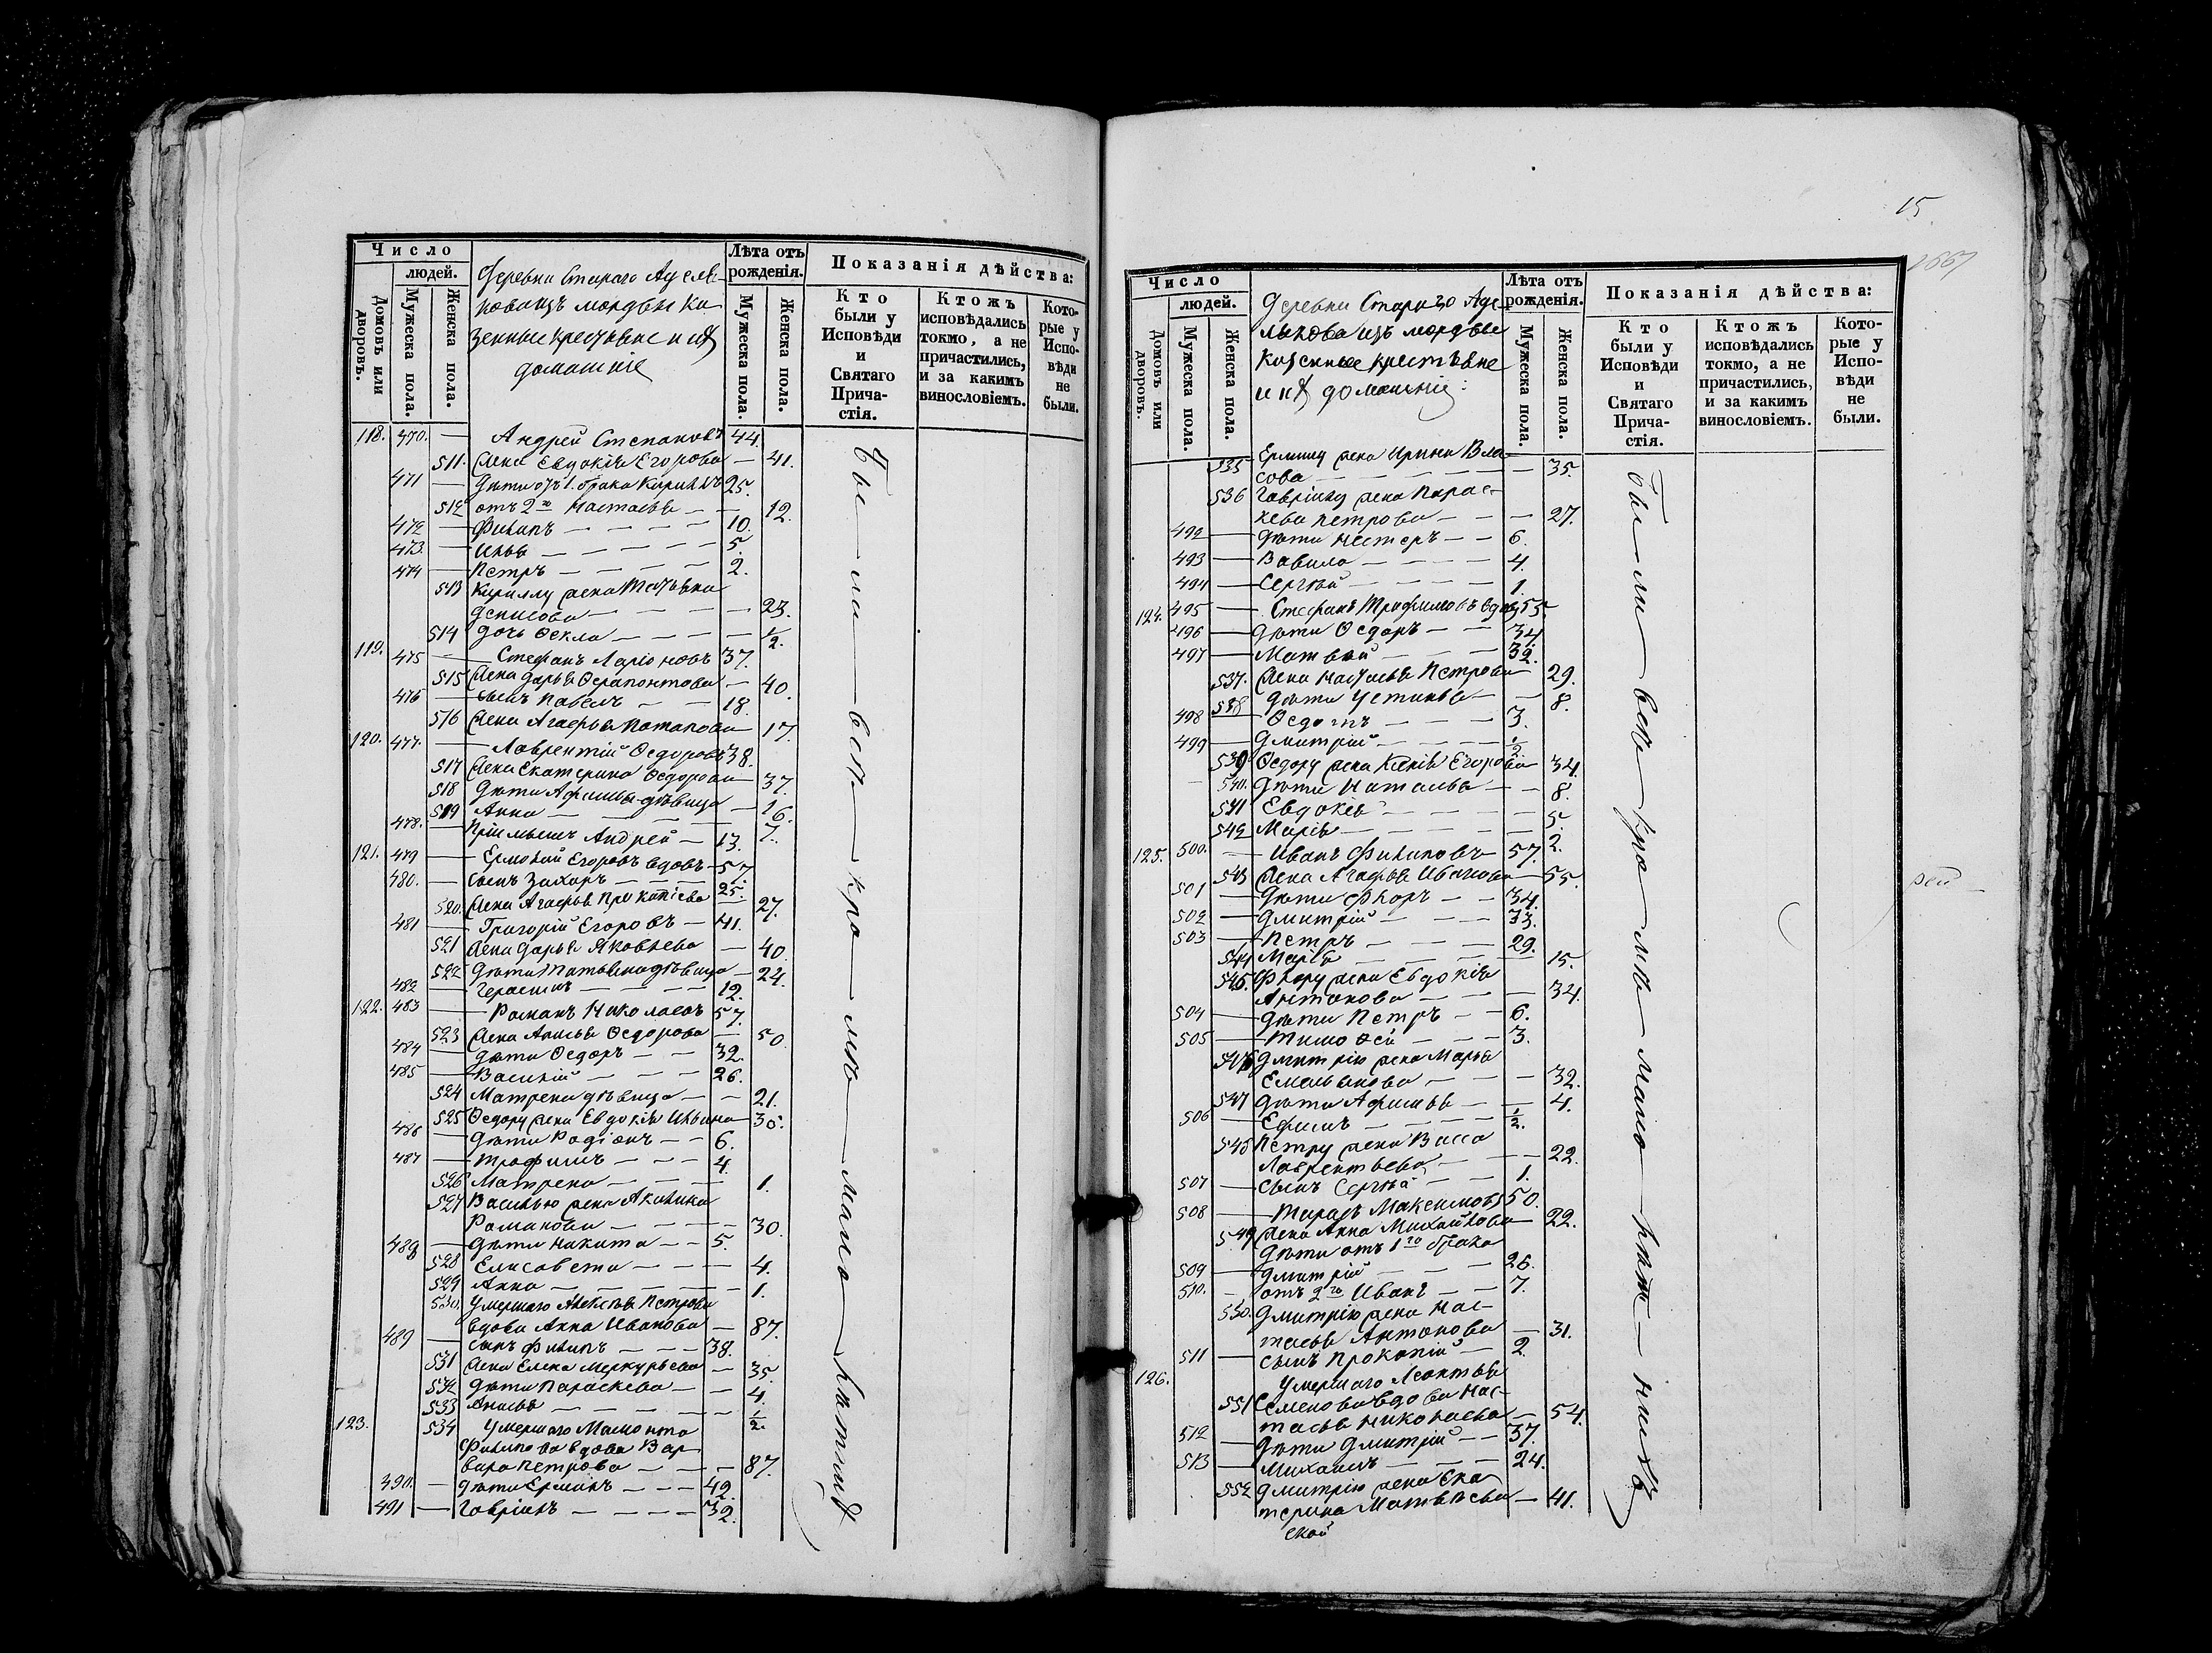 Число
людей.
Домовъ или дворовъ.
Мужеска пола.
Женска пола.
Деревни Стараго Адель-
кова изъ мордвы Ка-
зенные крестьяне и ихъ
домашніе
Лѣта отъ
рожденія.
Мужеска пола.
Женска пола.
Показанія дѣйства:
Кто
были у
Исповѣди
и
Святаго
Прича-
стія.
Ктожъ
исповѣдались
токмо, а не
причастились,
и за какимъ
винословіемъ.
Кото-
рые у
Испо-
вѣди
не
были.
118. 470. — Андрей Степановъ 44.
511. Жена Евдокія Егорова — 41.
471 — Дѣти отъ 1. брака Кириллъ 25.
512 отъ 2го Настасья — — 12.
472 — Филипъ — — — — 10.
473. — Илья — — — — 5.
474 — Петръ — — — — 2.
513 Кириллу жена Татьяна
Денисова — — — — 23.
514 дочь Ѳекла — — — — 1/2.
119. 475 — Стефанъ Ларіоновъ 37.
515 Жена Дарья Ѳерапонтова — 40.
476 — сынъ Павелъ — — 18.
516 Жена Агафья Потапова 17.
120. 477. — Лаврентій Ѳедоровъ 38.
517 Жена Екатерина Ѳедорова 37.
518 Дѣти Афимья дѣвица — 16.
519 Анна — — — — 7.
478. — Пріемышъ Андрей — 13.
121. 479 — Ермолай Егоровъ вдовъ 57.
480. — сынъ Захаръ — — — 25.
520. Жена Агафья Прокопіева 27.
481 — Григорій Егоровъ — 41.
521 Жена Дарья Яковлева — 40.
522 Дѣти Татьяна дѣвица — 24.
482 — Герасимъ — — — 12.
122. 483 — Романъ Николаевъ 57.
523 Жена Анисья Ѳедорова — 50.
484 — дѣти Ѳедоръ — — 32.
485 — Василій — — — 26.
524 Матрена дѣвица — — 21.
525 Ѳедору жена Евдокія Ильина 35.
486 — Дѣти Родіонъ — — 6.
487 — Трофимъ — — — 4.
526 Матрена — — — — 1.
527 Василью жена Акилина
Романова — — — — 30.
488 — Дѣти Никита — — 5.
528 Елисавета — — — 4.
529 Анна — — — — 1.
530. Умершаго Алексѣя Петрова
вдова Анна Иванова — 87.
489 — сынъ Филипъ — — — 38.
531 Жена Елена Меркурьева — 35.
532 Дѣти Параскева — — 4.
533 Анисья — — — — 1/2.
123. 534 Умершаго Мамонта
Филипова вдова Вар-
вара Петрова — — — 87.
490. — дѣти Ермилъ — — — 42.
491 — Гаврілъ — — — — 32.
Бы — ли — всѣ — кро — мѣ — мало — лѣтнихъ
15
Число
людей.
Домовъ или дворовъ.
Мужеска пола.
Женска пола.
Деревни Стараго Аде-
лькова изъ мордвы
Казенные крестьяне
и ихъ домашніе:
Лѣта отъ
рожденія.
Мужеска пола.
Женска пола.
Показанія дѣйства:
Кто
были у
Исповѣди
и
Святаго
Прича-
стія.
Ктожъ
исповѣдались
токмо, а не
причастились,
и за какимъ
винословіемъ.
Кото-
рые у
Испо-
вѣди
не
были.
535 Ермилу жена Ирина Вла-
сова — — — — 35.
536 Гаврілу жена Парас-
кева Петрова — — — 27.
492 — Дѣти Нестеръ — — 6.
493 — Вавила — — — — 4.
494 — Сергѣй — — — — 1.
124. 495 — Стефанъ Трифимовъ вдовъ 55.
496 — Дѣти Ѳедоръ — — 34.
497 — Матвѣй — — — 32.
537. Жена Настасья Петрова 29.
538 Дѣти Устинья — — 8.
498 — Ѳедотъ — — — 3.
499 — Дмитрій — — — — 1/2.
539 Ѳедору жена Ксенія Егорова 34.
540. Дѣти Наталья — — 8.
541 Евдокея — — — — 5.
542 Марія — — — — 2.
125. 500. — Иванъ Филиповъ 57.
543 Жена Агафья Иванова 55.
501 — Дѣти Флоръ — — 34.
502 — Дмитрій — — — 33.
503 — Петръ — — — 29.
544 Марія — — — — 15.
545. Флору жена Евдокія
Антонова — — — — 34.
504 — Дѣти Петръ — — 6.
505 — Тимоѳей — — — 3.
546 Дмитрію жена Марья
Емельянова — — — 32.
547 Дѣти Афимья — — 4.
506 — Ефимъ — — — — 1/2.
548 Петру жена Васса
Лаврентьева — — — 22.
507 — сынъ Сергѣй — — 1.
508 — Тарасъ Максимовъ 50.
549 Жена Анна Михайлова 22.
Дѣти отъ 1го брака
509 — Дмитрій — — — 26.
510. — отъ 2го Иванъ — — 7.
550. Дмитрію жена Нас-
тасья Антонова — 31.
511 — сынъ Прокопій — 2.
126. Умершаго Леонтья
551 Семенова вдова Нас-
тасья Николаева — 54.
512 — Дѣти Дмитрій — — 37.
513 — Михаилъ — — — 24.
552 Дмитрію жена Ека-
терина Матвѣева — 41.
Бы — ли — всѣ — кро — мѣ — мало — лѣт — нихъ